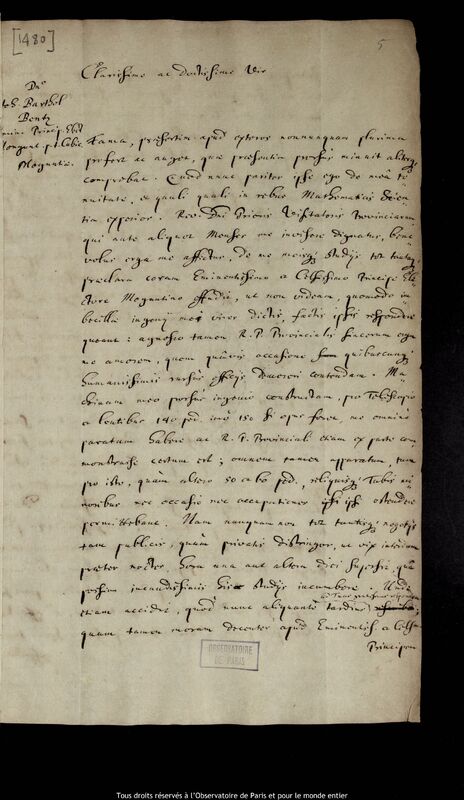 [1480]
5
Clarissime ac doctissime Vir
Dno
Joh Barthol
Bentz
Princip. Elect.
Moguntiæ.
Fama, præsertim apud exteros nonnunquam plurima
profert ac auget, quæ præsentia prorsus minuit aliterq;
comprobat. Quod nunc pariter ipse ego de meâ te-
nuitate, et quali quali in rebus Mathematicis Scien-
tia experior. Rev. Dni Prioris Visitatoris Provinciarum
qui ante aliquot Menses me invisere dignatus, bene-
volus erga me affectus, de me meisq; studijs tot tantaq;
præclara coram Eminentissimo a Celsissimo Principe Ele-
ctore Moguntino effudit, ut non videam, quomodo im-
becilla ingenij mei vires dictis, factis ipsis respondere
queant: agnosco tamen R. P. Provincialis sincerum erga
me amorem, quem quâvis occasione quibuscunq;
humanissimis rursus officijs demereri contendam. Ma-
chinam meo prorsus ingenio constructam, pro Telescopio
a lentibus 140 ped. imò 150 si opus foret, me omninò
paratam habere ac R. P. Provinciali etiam ex parte com-
monstrasse certum est; omnem tamen apparatum tam
pro isto, quàm altero 50 a 60 ped. reliquisq; Tubis mi-
noribus nec occasio nec occupationes ipsi ostendere
permittebant. Nam nunquam non tot tantisq; negotijs
tam publicis, quàm privatis distringor, ut vix interdum
præter noctes, hora una aut altera diei supersit, quâ
possim jucundissimis studijs incumbere. Unde
etiam accidit, quod nunc aliquantò tardius
quam tamen moram decenter apud Eminentiss. a Celsiss.
Principem
OBSERVATOIRE
DE PARIS
Tous droits réservés à l'Observatoire de Paris et pour le monde entier